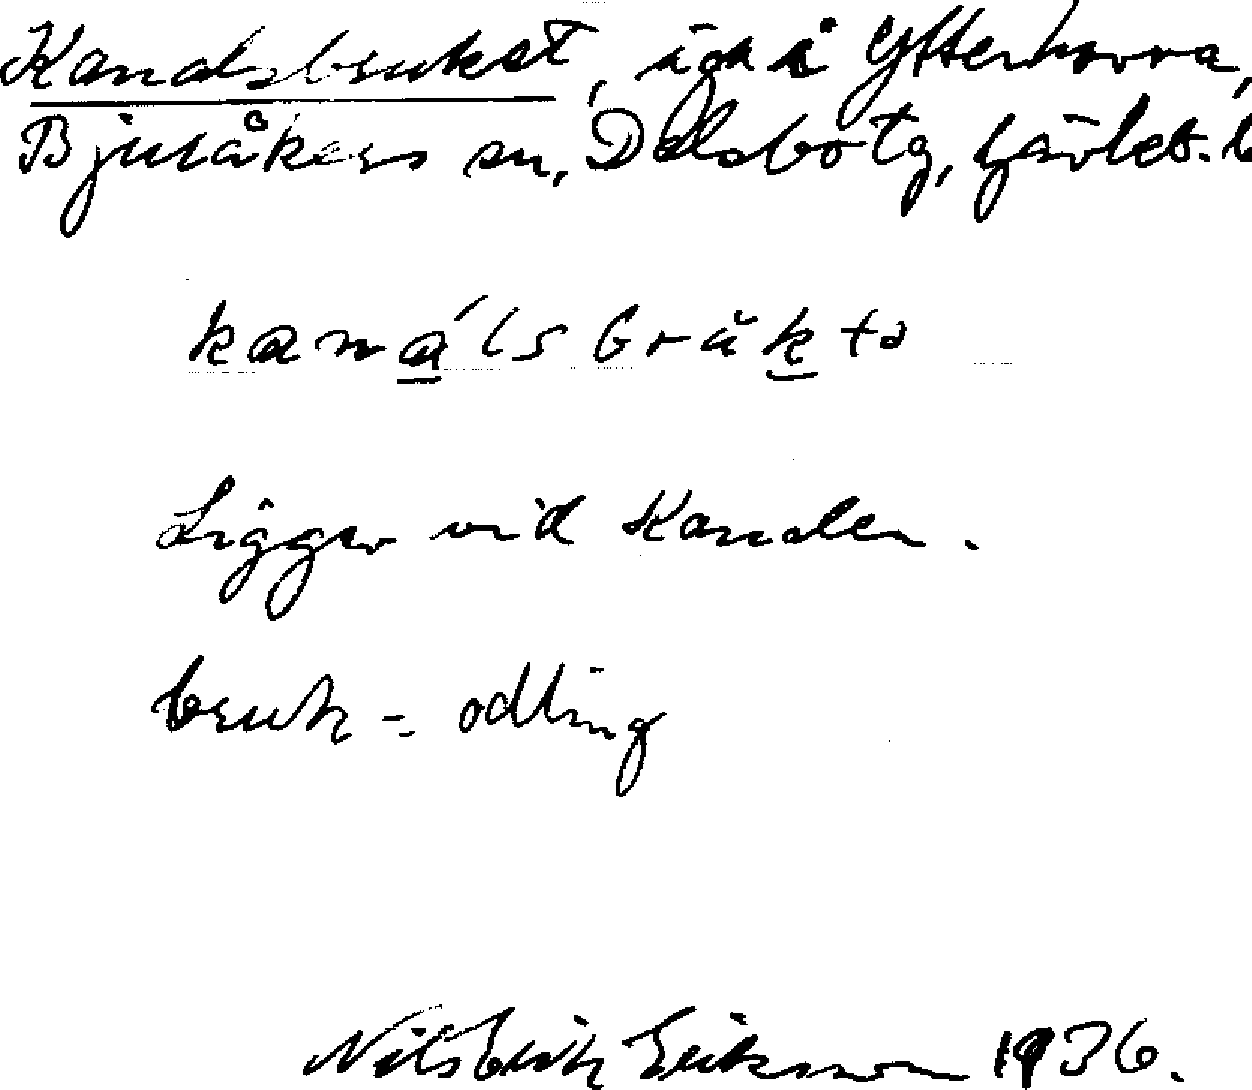 Kanalsbruket, äga i Ytterhovra,
Bjuråkers sn, Delsbo tg, Gävleb. l
kanálsbrŭkta
Ligger vid Kanalen.
bruk = odling
Nils Erik Eriksson 1936.